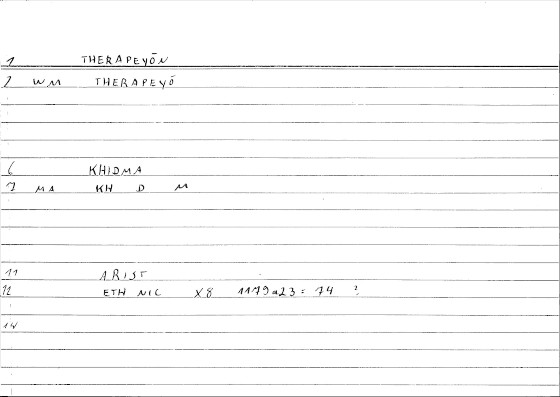 1 THERAPEYŌN
2 WM THERAPEYŌ
6 KHIDMA
7 MA KH D M
11 ARIST
12 ETH NIC X8 1179a23 = 74 ?
14